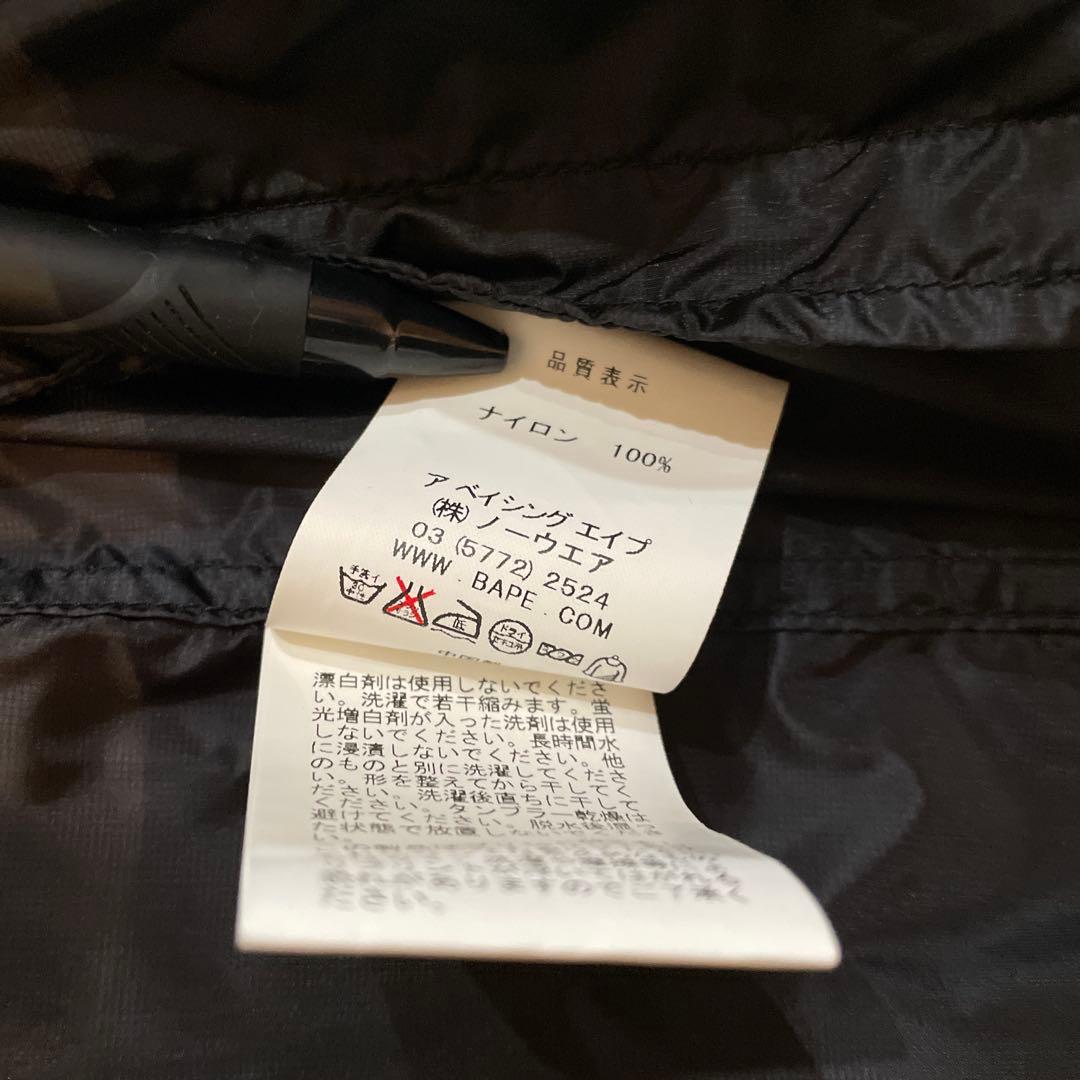 品質表示
ナイロン 100%
ア ベイシング エイプ
(株) ノーウエア
03 (5772) 2524
WWW . BAPE . COM
手洗イ
30
中性
低
ドライ
漂白剤は使用しないでくださ
い。洗濯で若干縮みます。蛍
光増白剤が入った洗剤は使用
しないでください。長時間水
に浸漬しないでください。他
のものと別に洗濯してくださ
い。形を整えてから干してく
ださい。洗濯後直ちに干して
ください。タンブラー乾燥は
避けてください。脱水後湿っ
た状態で放置しないでくださ
い。
ありますのでご了承く
ださい。